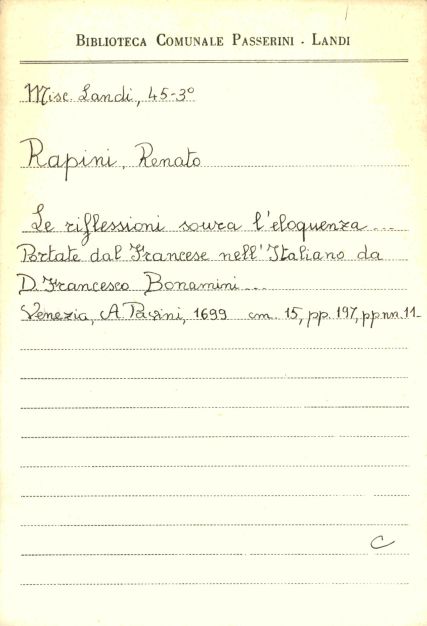 BIBLIOTECA COMUNALE PASSERINI - LANDI
Misc. Landi, 45-3°
Rapini, Renato
Le riflessioni sovra l'eloquenza ...
Portate dal Francese nell'Italiano da
D. Francesco Bonamini ...
Venezia, A. Pavini, 1699 cm. 15, pp. 197, pp nn. 11-
C